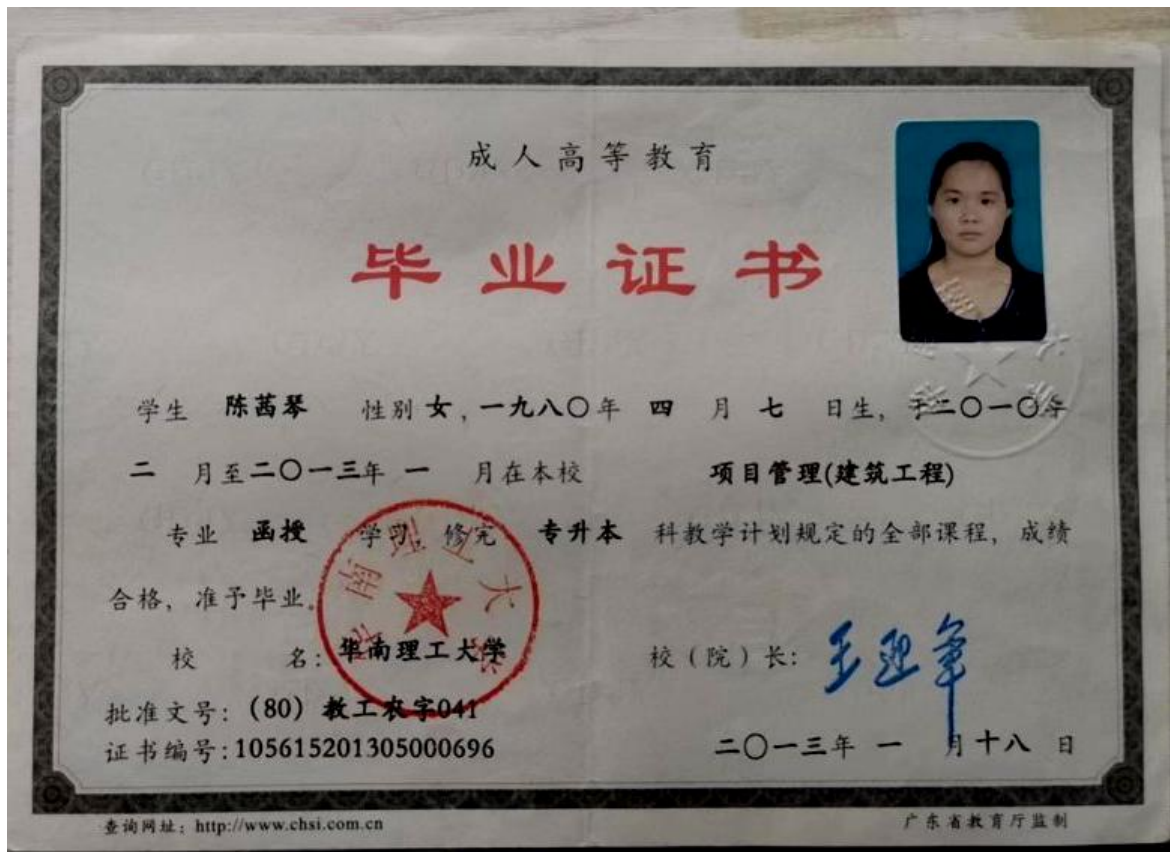 成人高等教育
毕业证书
学生 陈茜琴 性别 女，一九八〇年 四 月 七 日生，于二〇一〇年
二 月至二〇一三年 一 月在本校 项目管理(建筑工程)
专业 函授 学习，修完 专升本 科教学计划规定的全部课程，成绩
合格，准予毕业。
校 名：华南理工大学
校（院）长：王迎军
批准文号：(80) 教工农字041
证书编号：105615201305000696
二〇一三年 一 月十八 日
查询网址：http://www.chsi.com.cn
广东省教育厅监制
华南理工大学